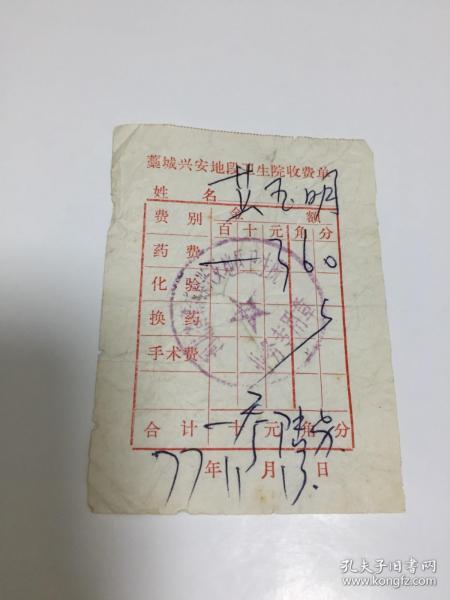 藁城兴安地段卫生院收费单
姓 名 黄玉明
费 别 金 额
百 十 元 角 分
药 费 3 6 0
化 验
换 药
手术费
合 计 十 元 角 分
77年11月13日
孔夫子旧书网
www.kongfz.com